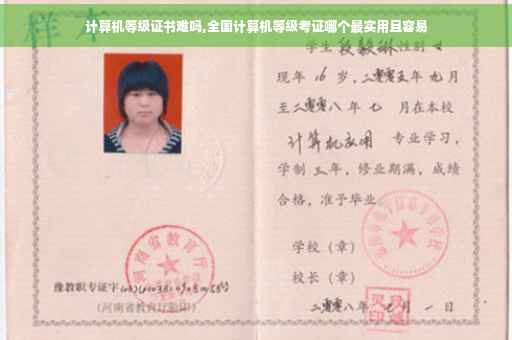 计算机等级证书难吗,全国计算机等级考证哪个最实用且容易
样本
学生 段毅琳 性别 女
现年 16 岁,二零零五年 九月
至二零零八年 七 月在本校
计算机应用 专业学习,
学制 三年,修业期满,成绩
合格,准予毕业
学校(章)
校长(章)
豫教职专证字
(河南省教育厅验印)
二零零八年 七 月 一 日
河南省教育厅